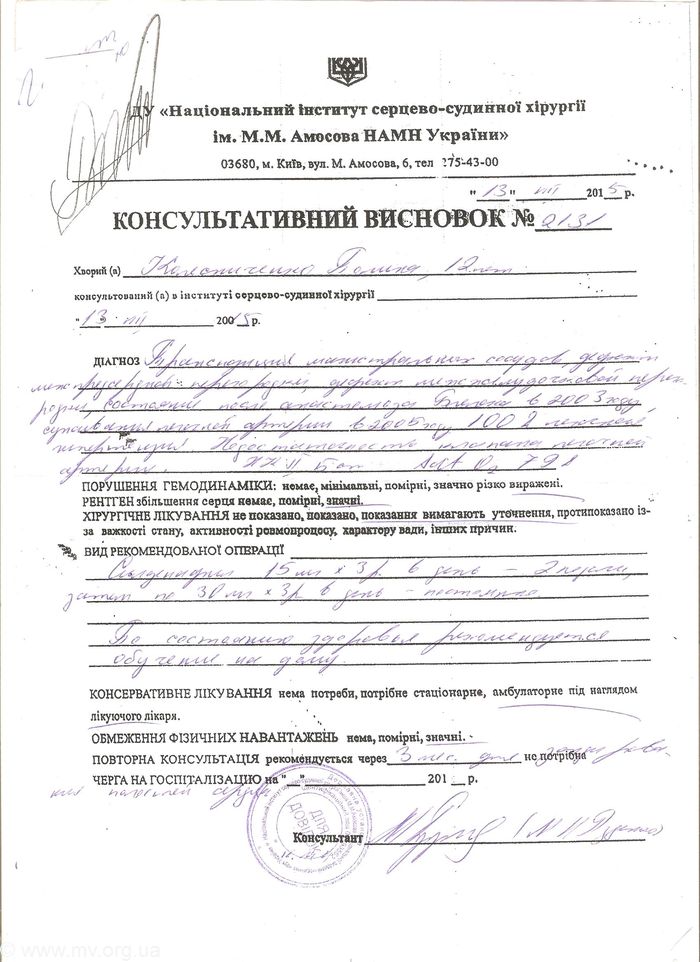 ДУ «Національний інститут серцево-судинної хірургії
ім. М.М. Амосова НАМН України»
03680, м. Київ, вул. М. Амосова, 6, тел 275-43-00
"13" VIII 2015 р.
КОНСУЛЬТАТИВНИЙ ВИСНОВОК № 2131
Хворий (а) Колесниченко Полина, 12 лет
консультований (а) в інституті серцево-судинної хірургії
"13" VIII 2015 р.
ДІАГНОЗ Транспозиция магистральных сосудов дефект
межпредсердной перегородки, дефект межжелудочковой перего-
родки, состояние после в 2003 году,
суживания легочной артерии в 2005 году 100 % легочная
гипертензия Недостаточность клапана легочной
артерии. НК II Sat O2 79%
ПОРУШЕННЯ ГЕМОДИНАМІКИ: немає, мінімальні, помірні, значно різко виражені.
РЕНТГЕН збільшення серця немає, помірні, значні.
ХІРУРГІЧНЕ ЛІКУВАННЯ не показано, показано, показання вимагають уточнення, протипоказано із-
за важкості стану, активності ревмопроцесу, характеру вади, інших причин.
ВИД РЕКОМЕНДОВАНОЇ ОПЕРАЦІЇ
Силденафил 15 мг х 3 р. в день – 2 недели,
затем по 30 мг х 3 р. в день – постоянно
По состоянию здоровья рекомендуется
обучение на дому.
КОНСЕРВАТИВНЕ ЛІКУВАННЯ нема потреби, потрібне стаціонарне, амбулаторне під наглядом
лікуючого лікаря.
ОБМЕЖЕННЯ ФІЗИЧНИХ НАВАНТАЖЕНЬ нема, помірні, значні.
ПОВТОРНА КОНСУЛЬТАЦІЯ рекомендується через 3 мес. для не потрібна
ЧЕРГА НА ГОСПІТАЛІЗАЦІЮ на "__" 201__ р.
сердца
ДЛЯ
ДОВІДОК
Консультант
© www.mv.org.ua